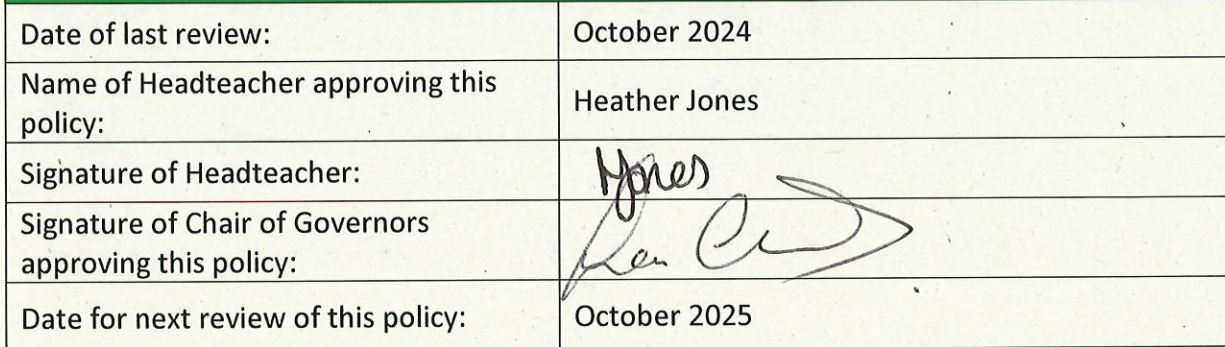 Date of last review: October 2024
Name of Headteacher approving this
policy: Heather Jones
Signature of Headteacher: HJones
Signature of Chair of Governors
approving this policy:
Date for next review of this policy: October 2025